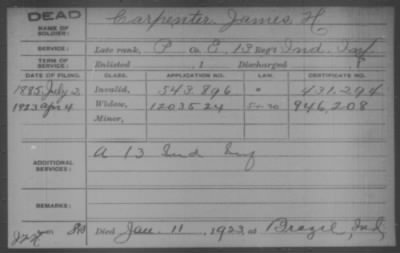 DEAD
NAME OF SOLDIER: Carpenter, James H.
SERVICE: Late rank, P Co. E, 13 Reg't Ind. Inf
TERM OF SERVICE: Enlisted , 1 Discharged , 8
DATE OF FILING. CLASS. APPLICATION NO. LAW. CERTIFICATE NO.
1885 July 2 Invalid, 543.896 * 431.294
1923 Apr 4 Widow, 1203524 946,208
Minor,
ADDITIONAL SERVICES: A 13 Ind Inf
REMARKS:
Died Jan. 11, 1923, at Brazil, Ind